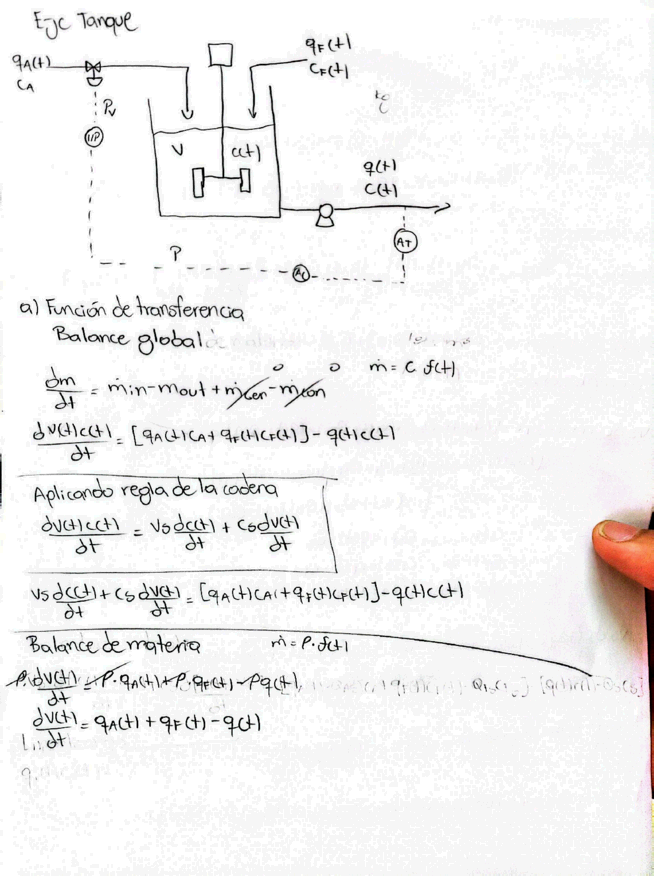 Ejc Tanque
qA(t)
CA
qF(t)
CF(t)
Pv
I/P
V
c(t)
q(t)
C(t)
AT
P
AC
a) Función de transferencia
Balance global
dm/dt = ṁin - mout + ṁGen - ṁcon
0 0
ṁ = C f(t)
dV(t)c(t)/dt = [qA(t)CA + qF(t)CF(t)] - q(t)c(t)
Aplicando regla de la cadena
dV(t)c(t)/dt = Vs dc(t)/dt + Cs dV(t)/dt
Vs dc(t)/dt + Cs dV(t)/dt = [qA(t)CA(+qF(t)CF(t)] - q(t)c(t)
Balance de materia
ṁ = P·f(t)
P·dV(t)/dt = P·qA(t) + P·qF(t) - Pq(t)
dV(t)/dt = qA(t) + qF(t) - q(t)